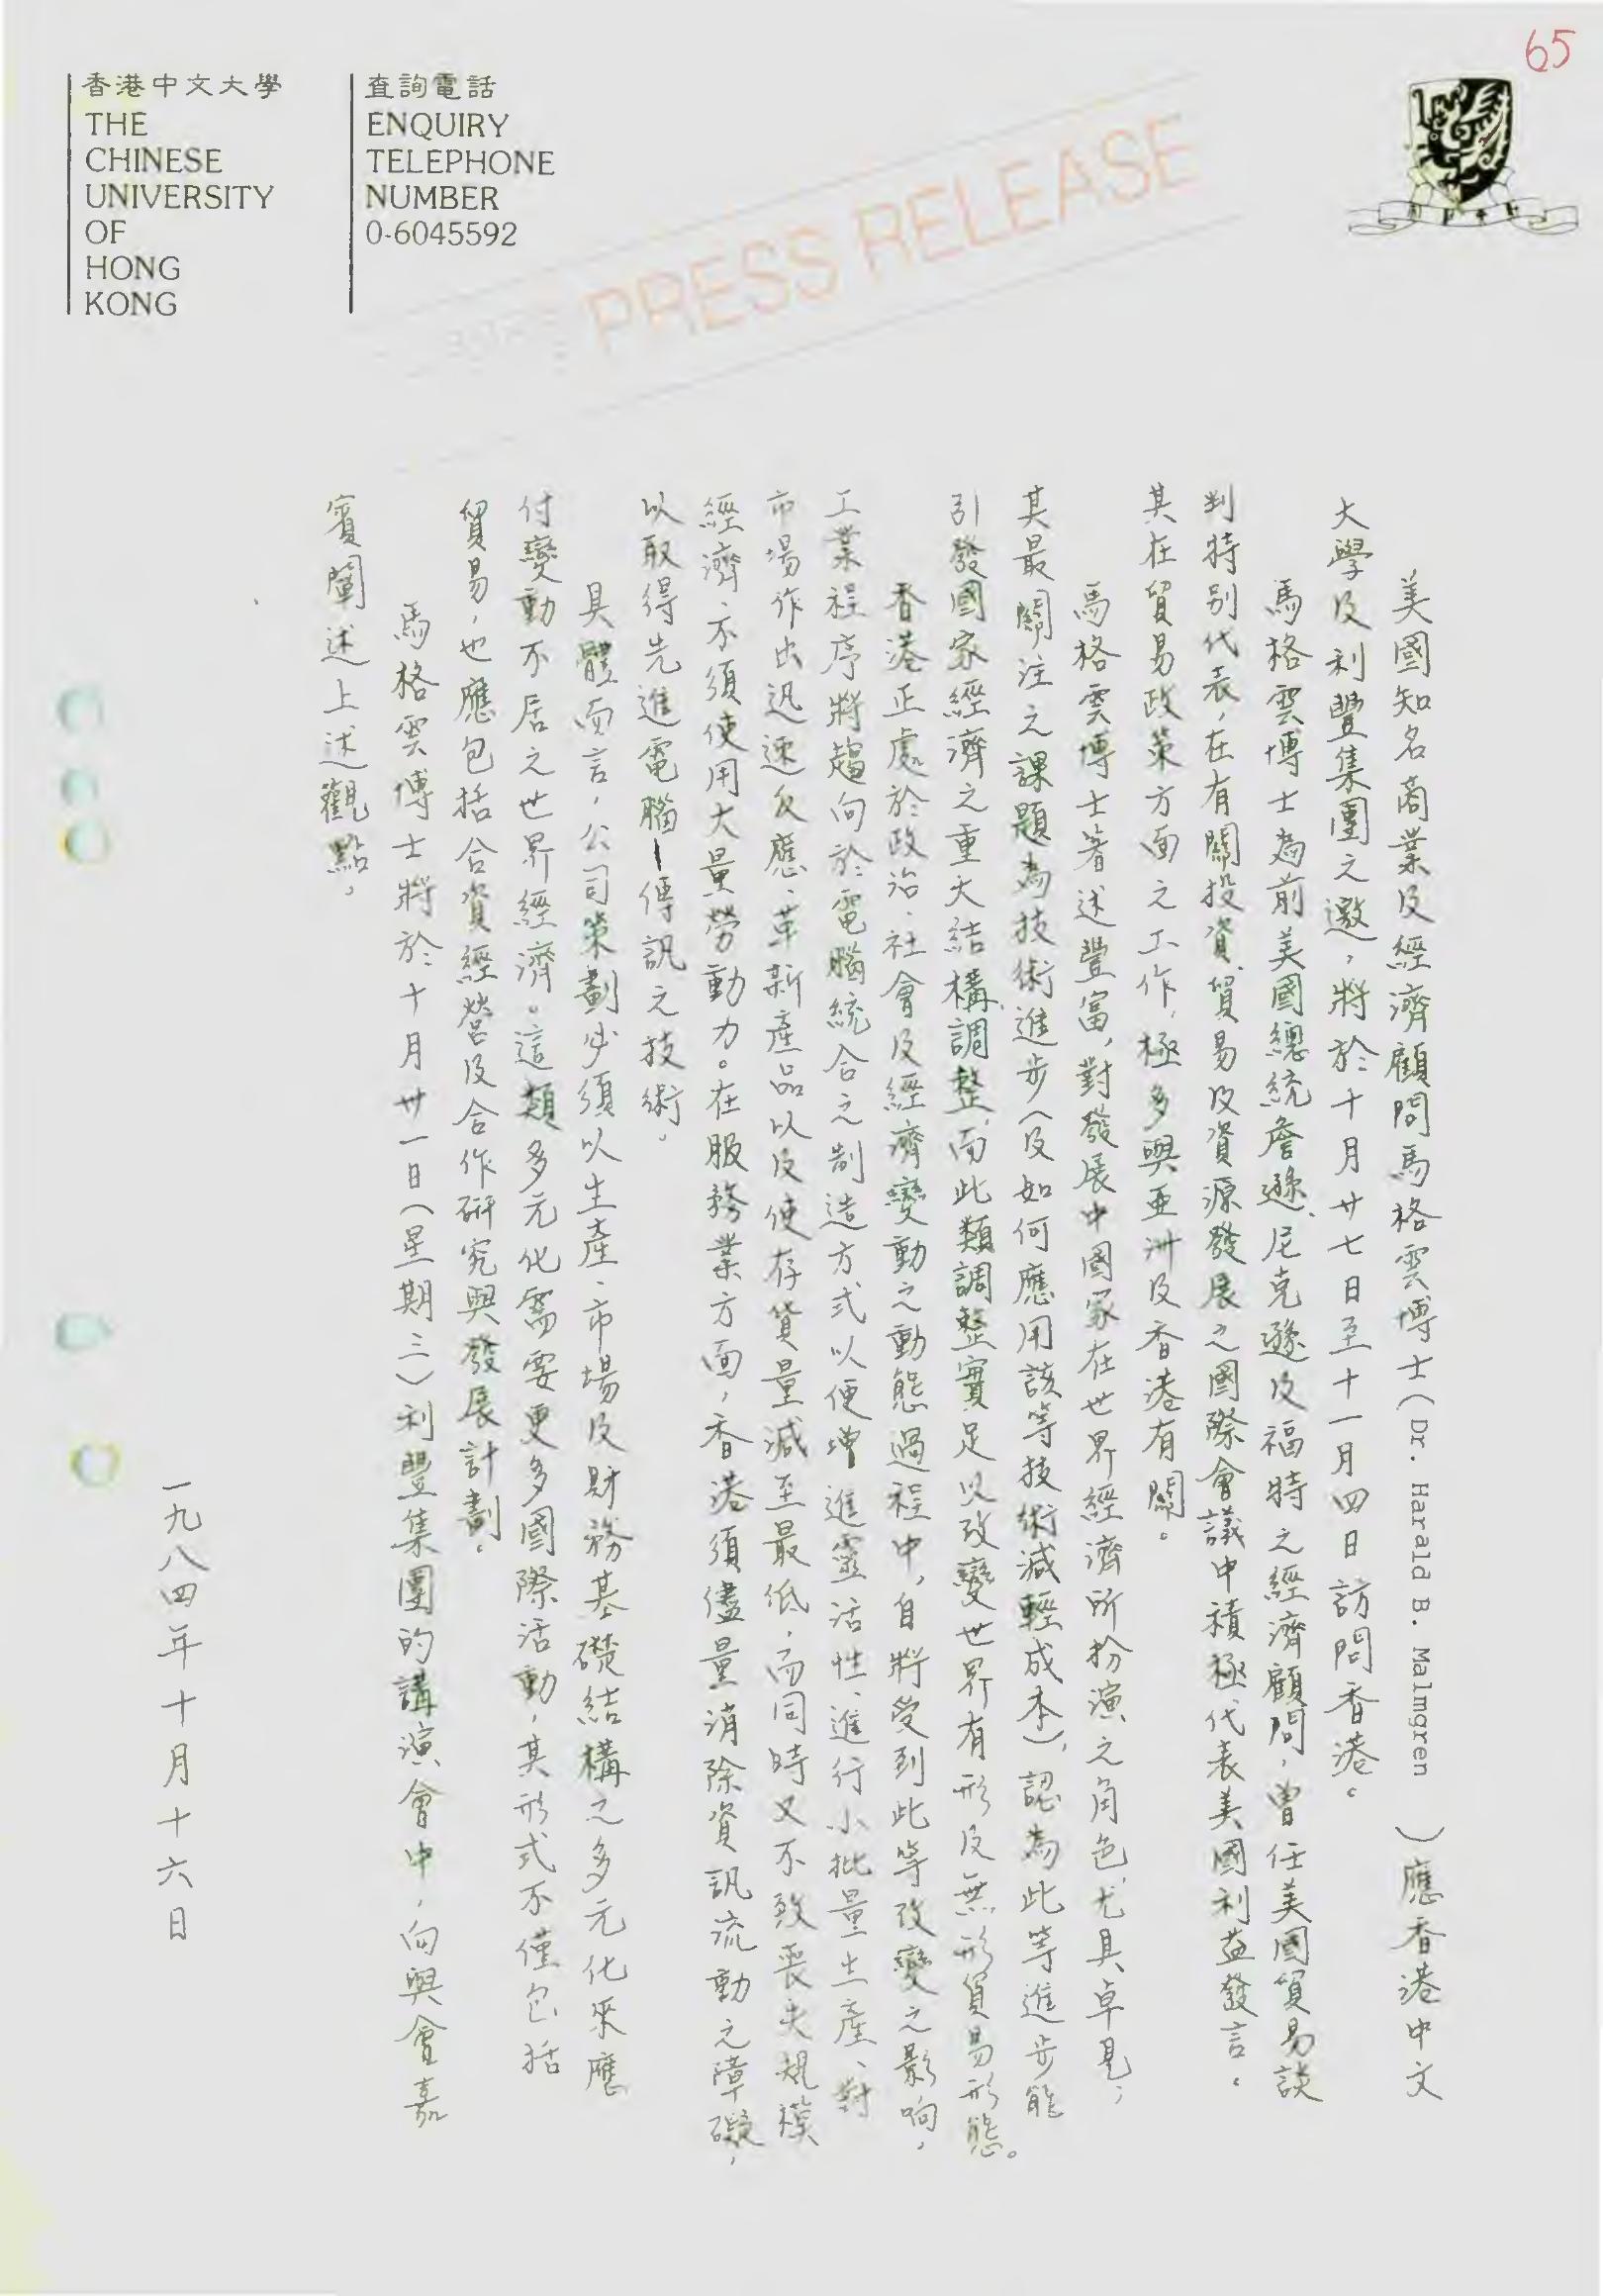 65
香港中文大學
THE
CHINESE
UNIVERSITY
OF
HONG
KONG
查詢電話
ENQUIRY
TELEPHONE
NUMBER
0-6045592
PRESS RELEASE
美國知名商業及經濟顧問馬格雲博士(Dr. Harald B. Malmgren)應香港中文
大學及利豐集團之邀,將於十月廿七日至十一月四日訪問香港。
馬格雲博士為前美國總統詹遜、尼克遜及福特之經濟顧問,曾任美國貿易談
判特別代表,在有關投資、貿易及資源發展之國際會議中積極代表美國利益發言。
其在貿易政策方面之工作,極多與亞洲及香港有關。
馬格雲博士著述豐富,對發展中國家在世界經濟所扮演之角色,尤具卓見,
其最關注之課題為技術進步(及如何應用該等技術減輕成本),認為此等進步能
引發國家經濟之重大結構調整,而此類調整實足以改變世界有形及無形貿易形態。
香港正處於政治、社會及經濟變動之動態過程中,自將受到此等改變之影响,
工業程序將趨向於電腦統合之制造方式以便增進靈活性、進行小批量生產、對
市場作出迅速反應、革新產品以及使存貨量減至最低,而同時又不致喪失規模
經濟,不須使用大量勞動力。在服務業方面,香港須儘量消除資訊流動之障礙,
以取得先進電腦-傳訊之技術。
具體而言,公司策劃必須以生產、市場及財務基礎結構之多元化來應
付變動不居之世界經濟。這類多元化需要更多國際活動,其形式不僅包括
貿易,也應包括合資經營及合作研究與發展計劃。
馬格雲博士將於十月卅一日(星期三)利豐集團的講演會中,向與會嘉
賓闡述上述觀點。
一九八四年十月十六日